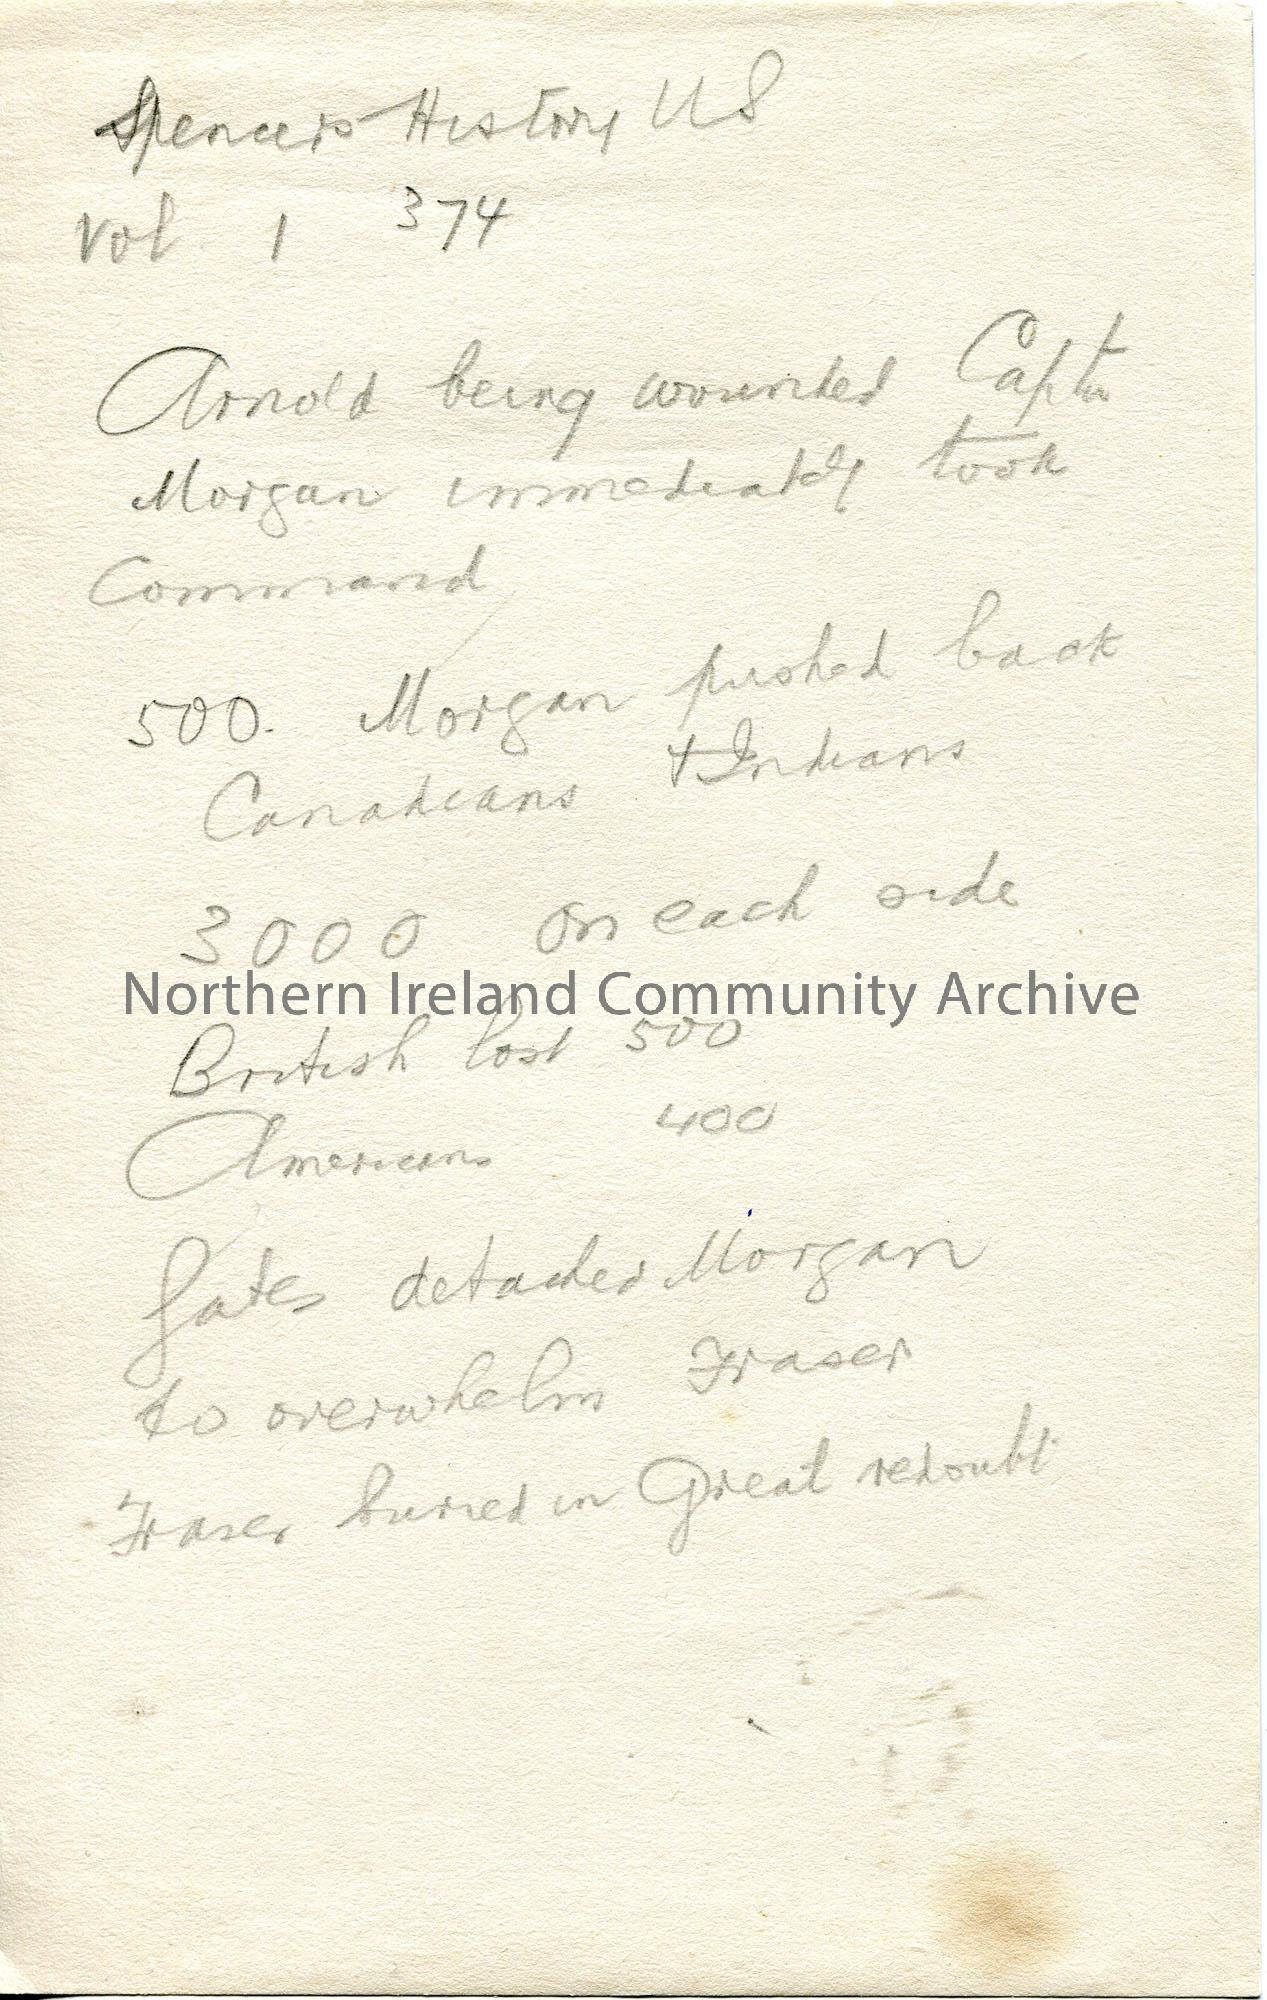 Spencers History US
Vol 1 374
Arnold being wounded Captn
Morgan immediately took
Command
500. Morgan pushed back
Canadians + Indians
3000 on each side
Northern Ireland Community Archive
British lost 500
Americans 400
Gates detached Morgan
to overwhelm Fraser
Fraser buried in Great redoubt